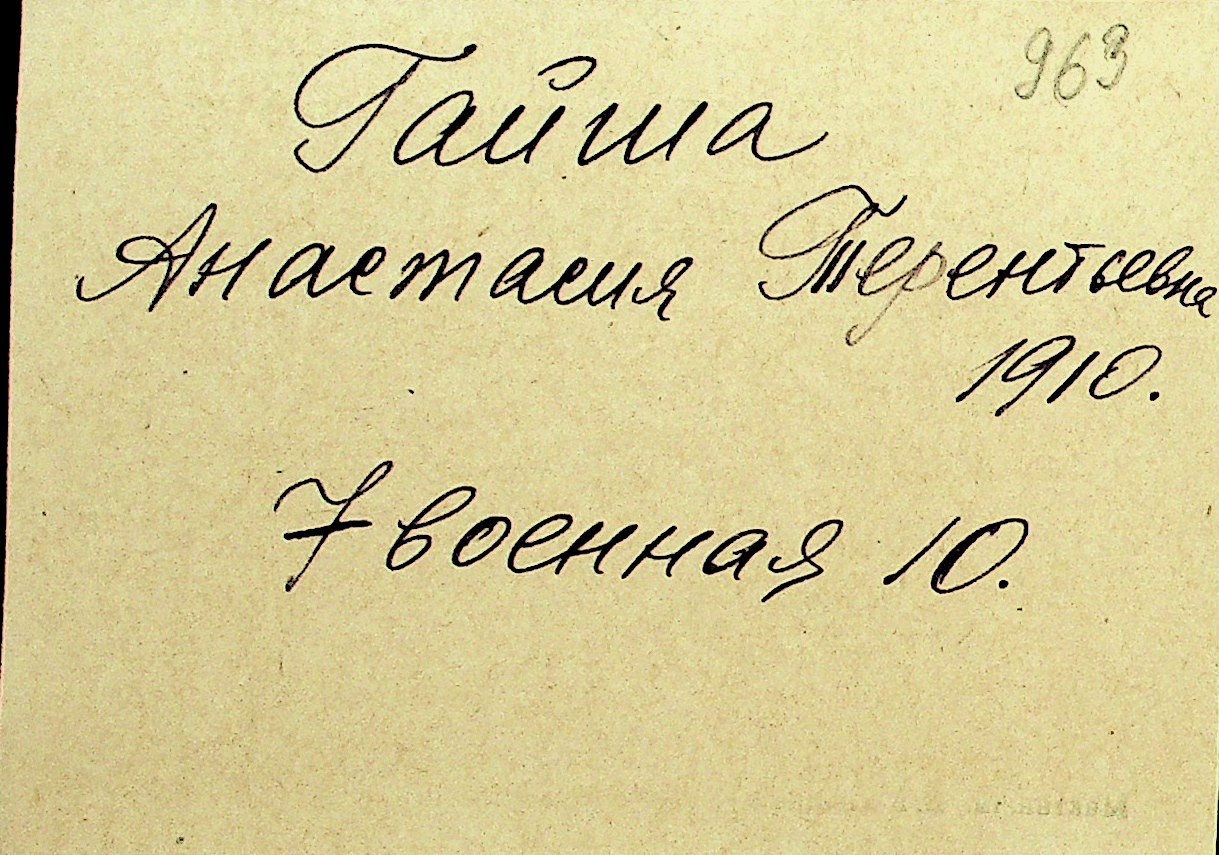 963
Гайша
Анастасия Терентьевна
1910.
7 военная 10.